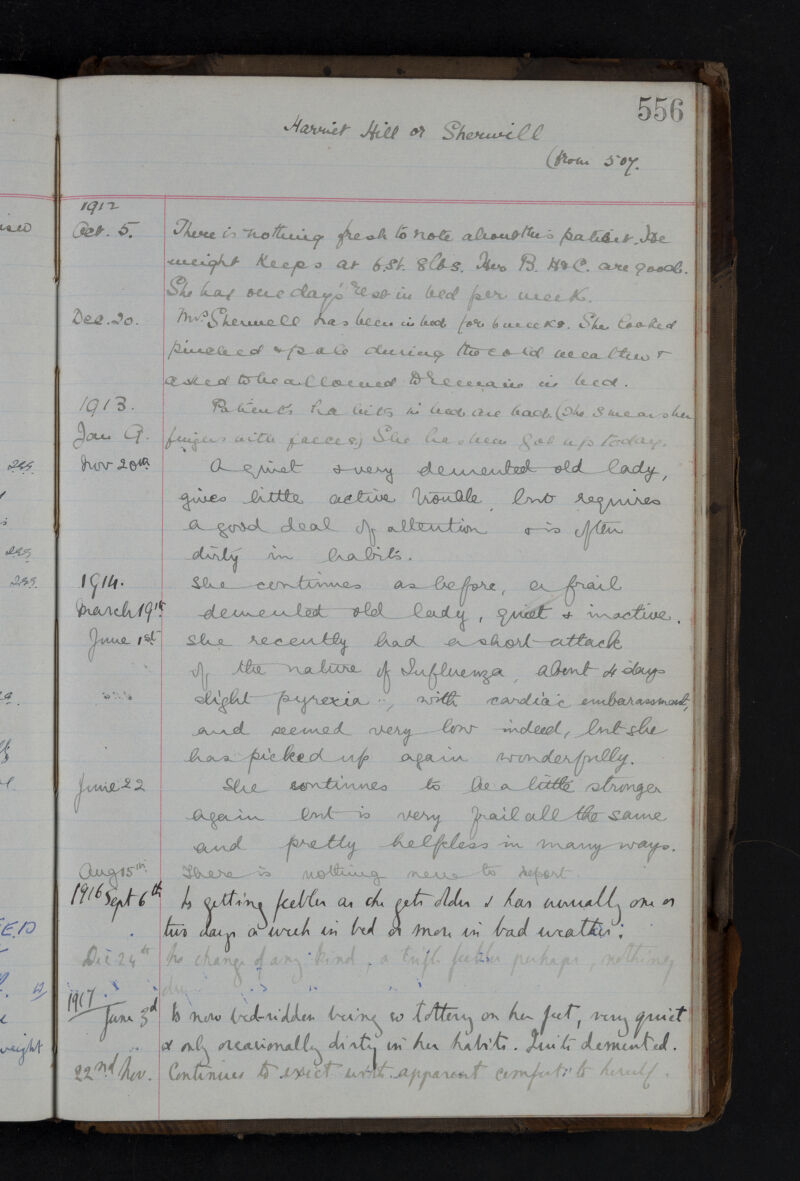 556
Harriet Hill or Sherwill
(from 507.
1912
Oct. 5. There is nothing fresh to note about this patient. Her
weight keeps at 6 st. 8 lbs. Her B. H & C. are good.
She has one day's rest in bed per week.
Dec. 20. Mrs Sherwell has been in bed for 6 weeks. She looked
pinched & pale during the cold weather &
asked to be allowed to remain in bed.
1913. Patient's habits in bed are bad (she smears her
Jan 9. fingers with faeces) She has been got up today.
Nov 20th A quiet & very demented old lady,
gives little active trouble, but requires
a good deal of attention & is often
dirty in habits.
1914. She continues as before, a frail
March 19th demented old lady, quiet & inactive.
June 1st She recently had a short attack
of the nature of Influenza, about 4 days
slight pyrexia, with cardiac embarassment,
and seemed very low indeed, but she
has picked up again wonderfully.
June 22 She continues to be a little stronger
again but is very frail all the same
and pretty helpless in many ways.
Aug 15th There is nothing new to report.
1916 Sept 6th Is getting feebler as she gets older & has usually one or
two days a week in bed or more in bad weather.
Dec 24th No change of any kind, a trifle feebler perhaps, nothing
1917
June 3d Is now bed-ridden being so tottery on her feet, very quiet
& only occasionally dirty in her habits. Quite demented.
22nd Nov. Continues to exist with apparent comfort to herself.